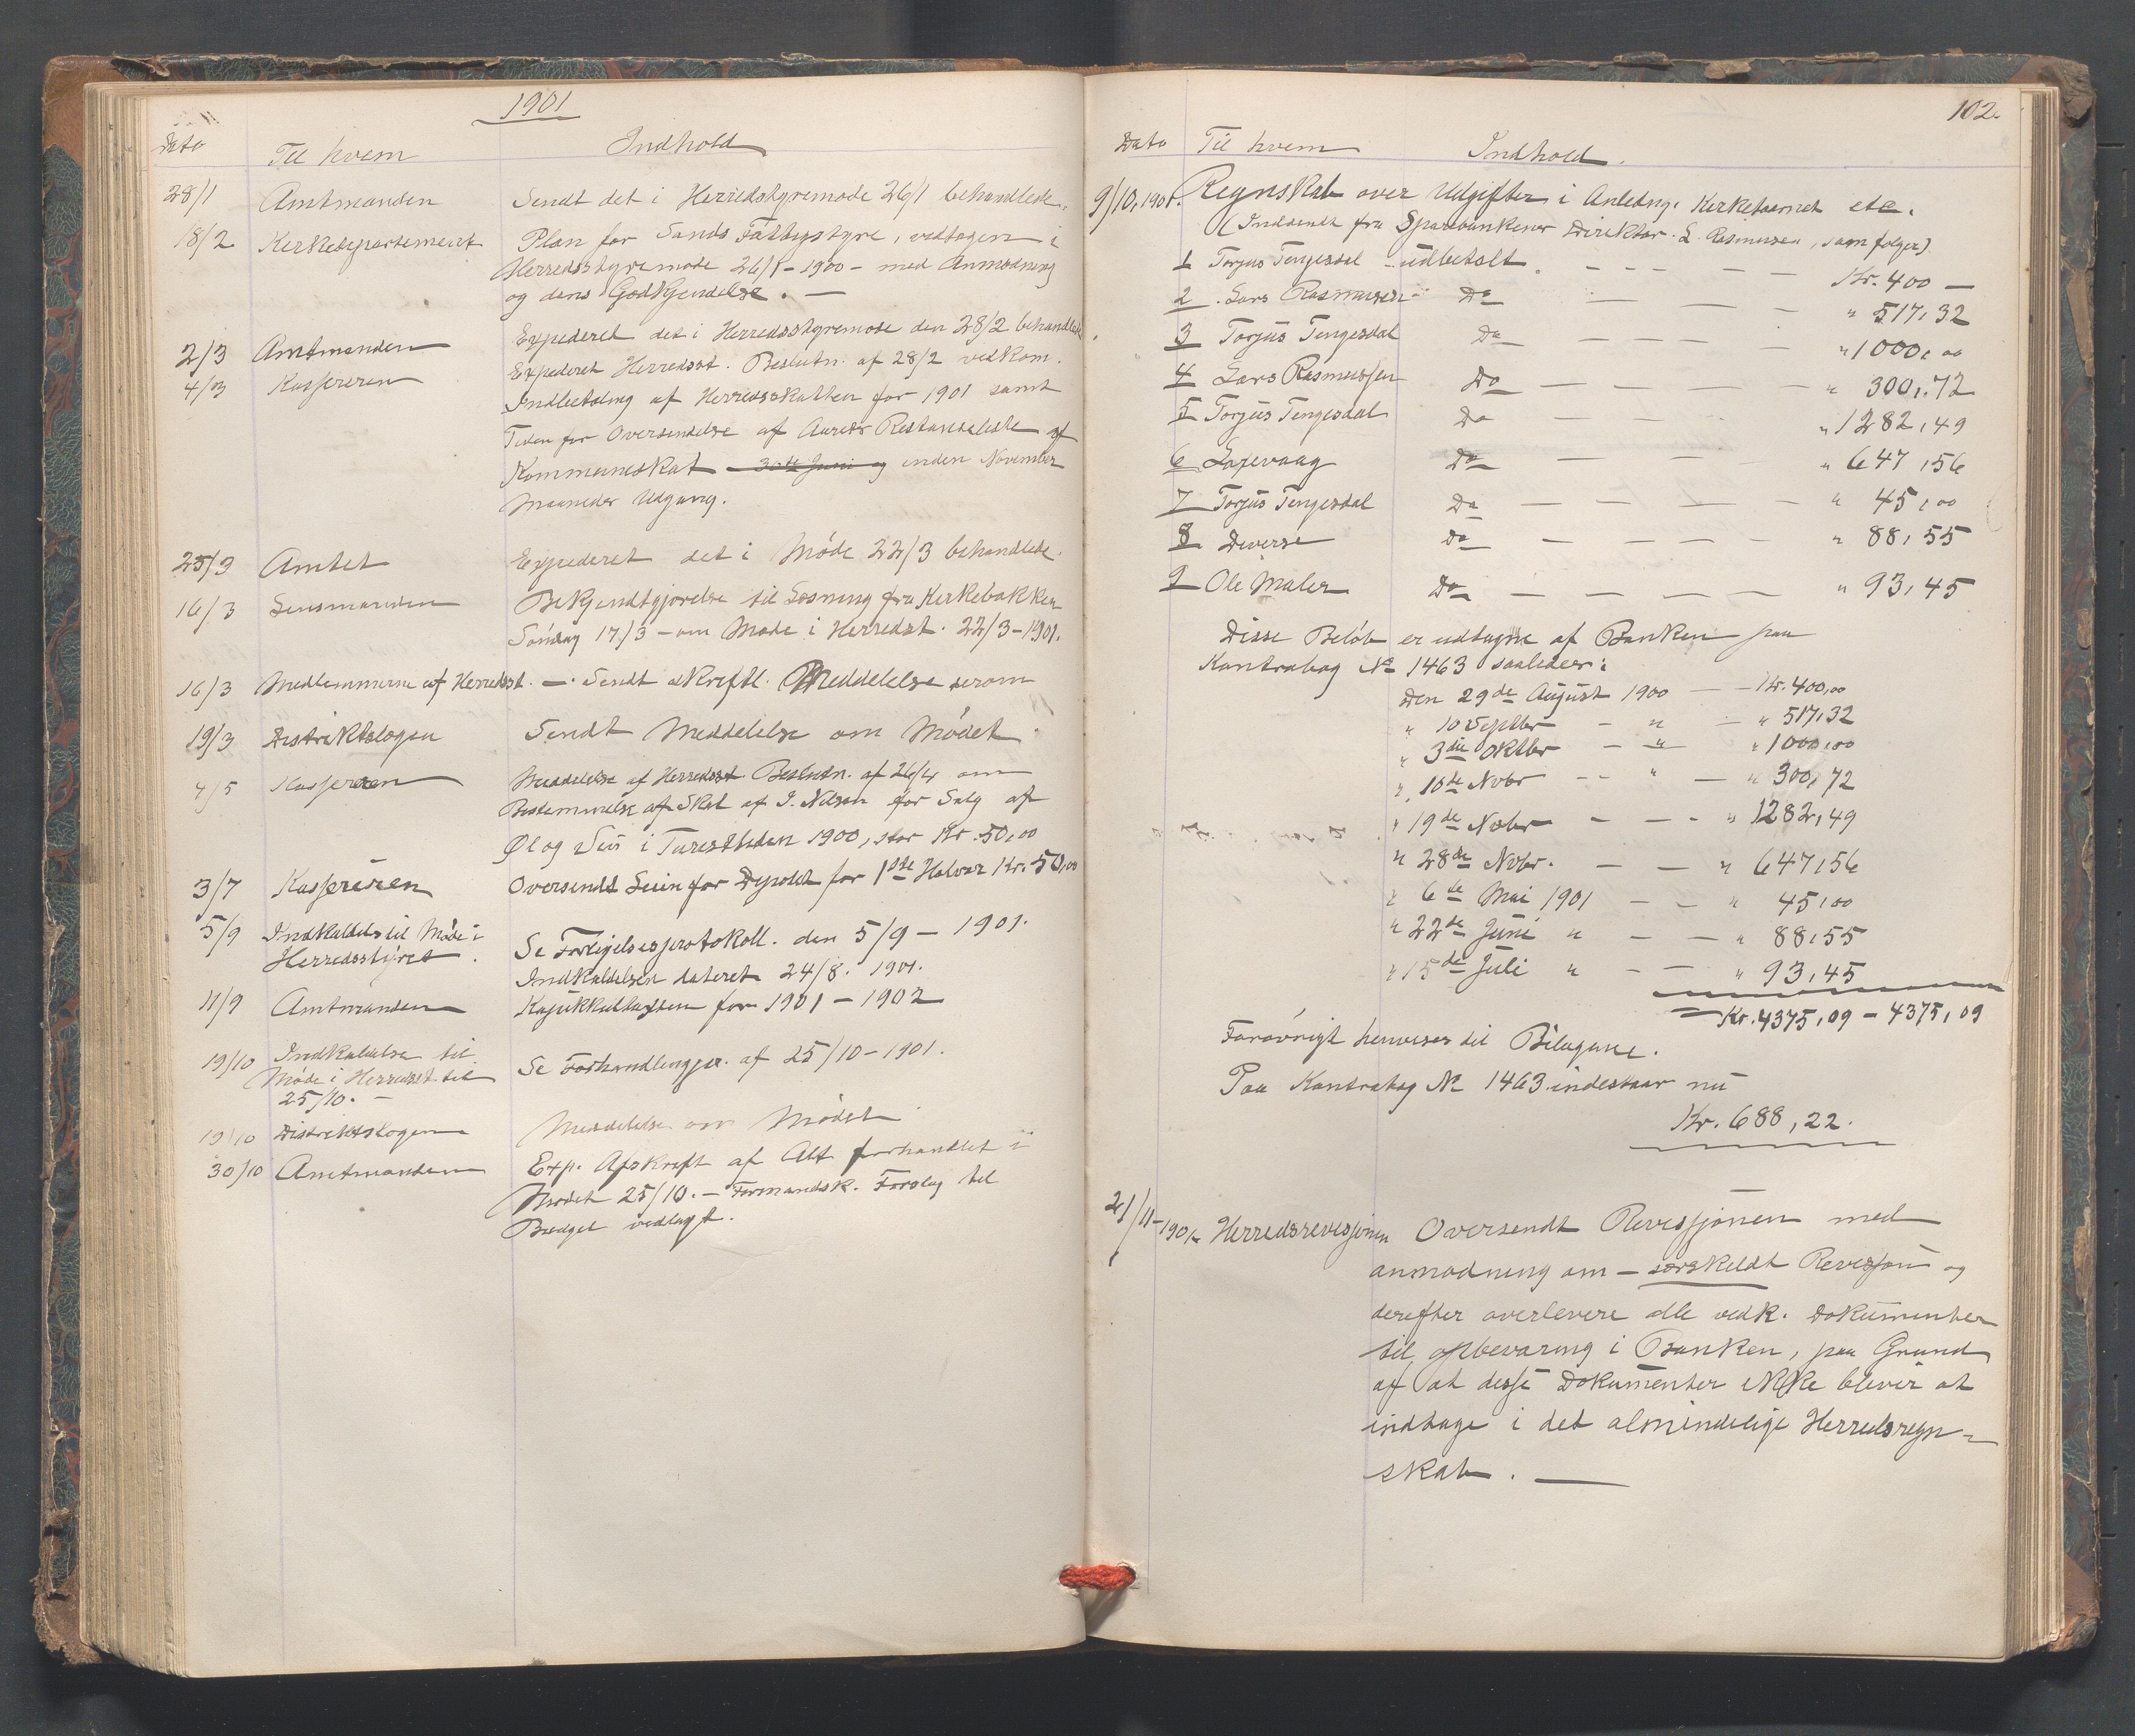 1901
Dato Til hvem Indhold
28/1 Amtmanden Sendt det i Herredstyremøde 26/1 behandlede.
18/2 Kirkedepartement Plan for Sands Fattigstyre, vedtagen i
Herredsstyremøde 26/1-1900 - med Anmodning
og dens Godkjendelse. —
2/3 Amtmanden Expederet det i Herredsstyremøde den 28/2 behandlede.
4/3 Kassereren Expederet Herredsst. Beslutn. af 28/2 vedkom.
Indbetaling af Herredsskatten for 1901 samt
Tiden for Oversendelse af Aarets Restanseliste af
Kommuneskat — 30te Juni og inden November
Maaneder Udgang.
25/3 Amtet Expederet det i Møde 22/3 behandlede.
16/3 Lensmanden Bekjendtgjørelse til Læsning fra Kirkebakken
Søndag 17/3 - om Møde i Herredst. 22/3-1901.
16/3 Medlemmerne af Herredsst. —. Sendt skriftl. Meddelelse derom
19/3 Distriktslægen Sendt Meddelelse om Mødet
4/5 Kassereren Meddelelse af Herredsst Beslutn. af 26/4 om
Bestemmelse af Skat af J. Nilsen for Salg af
Øl og Vin i Turesttiden 1900, stor Kr. 50,00
3/7 Kassereren Oversendt Leien for Depotet for 1ste Halvår Kr. 50,00
5/9 Indkaldelse til Møde i
Herredsstyret. Se Forligelsesprotokoll. den 5/9 - 1901.
Indkaldelsen dateret 24/8. 1901.
11/9 Amtmanden for 1901 - 1902
19/10 Indkaldelse til
Møde i Herredsst. til Se Forhandlingspr. af 25/10-1901.
25/10. -
19/10 Distriktslægen Meddelelse om Mødet
30/10 Amtmanden Exp. Afskrift af Alt forhandlet i
Mødet 25/10. - Formandsk. Forslag til
Budget vedlagt.
102.
Dato Til hvem Indhold.
9/10.1901. Regnskab over Udgifter i Anledng. Kirketaarnet etc.
(Indsendt fra Sparebankens Direktør. L. Rasmussen, som følger)
1 Torjus Tengesdal udbetalt. - - - - - Kr. 400 —
2 Lars Rasmussen Do — — — " 517,32
3 Torjus Tengesdal Do — — — — " 1000,00
4 Lars Rasmussen Do — — — " 300,72
5 Torjus Tengesdal Do — — " 1282,49
6 Lagevaag Do — — — " 647,56
7 Torjus Tengesdal Do — — — — " 45,00
8 Diverse Do — — — — " 88,55
9 Ole Maler Do — — — — — " 93,45
Disse Beløb er udtagne af Banken paa
Kontrabog No 1463 saaledes:
Den 29de August 1900 — Kr. 400,00
" 10 Septbr - " — " 517,32
" 3die Oktbr - " " 1000,00
" 10de Novbr - - " — " 300,72
" 19de Novbr - - - " 1282,49
" 28de Novbr. — — " 647,56
" 6te Mai 1901 — — " 45,00
" 22de Juni " — — " 88,55
" 15de Juli " — — " 93,45
Kr. 4375,09 - 4375,09
Forøvrigt henvises til Bilagene.
Paa Kontrabog No 1463 indestaar nu
Kr. 688,22.
21/11-1901 Herredsrevisjonen Oversendt Revisjonen med
anmodning om - særskildt Revisjon og
derefter overlevere alle vedk. Dokumenter
til opbevaring i Banken, paa Grund
af at disse Dokumenter ikke bliver at
indtage i det almindelige Herredsregn-
skab. —